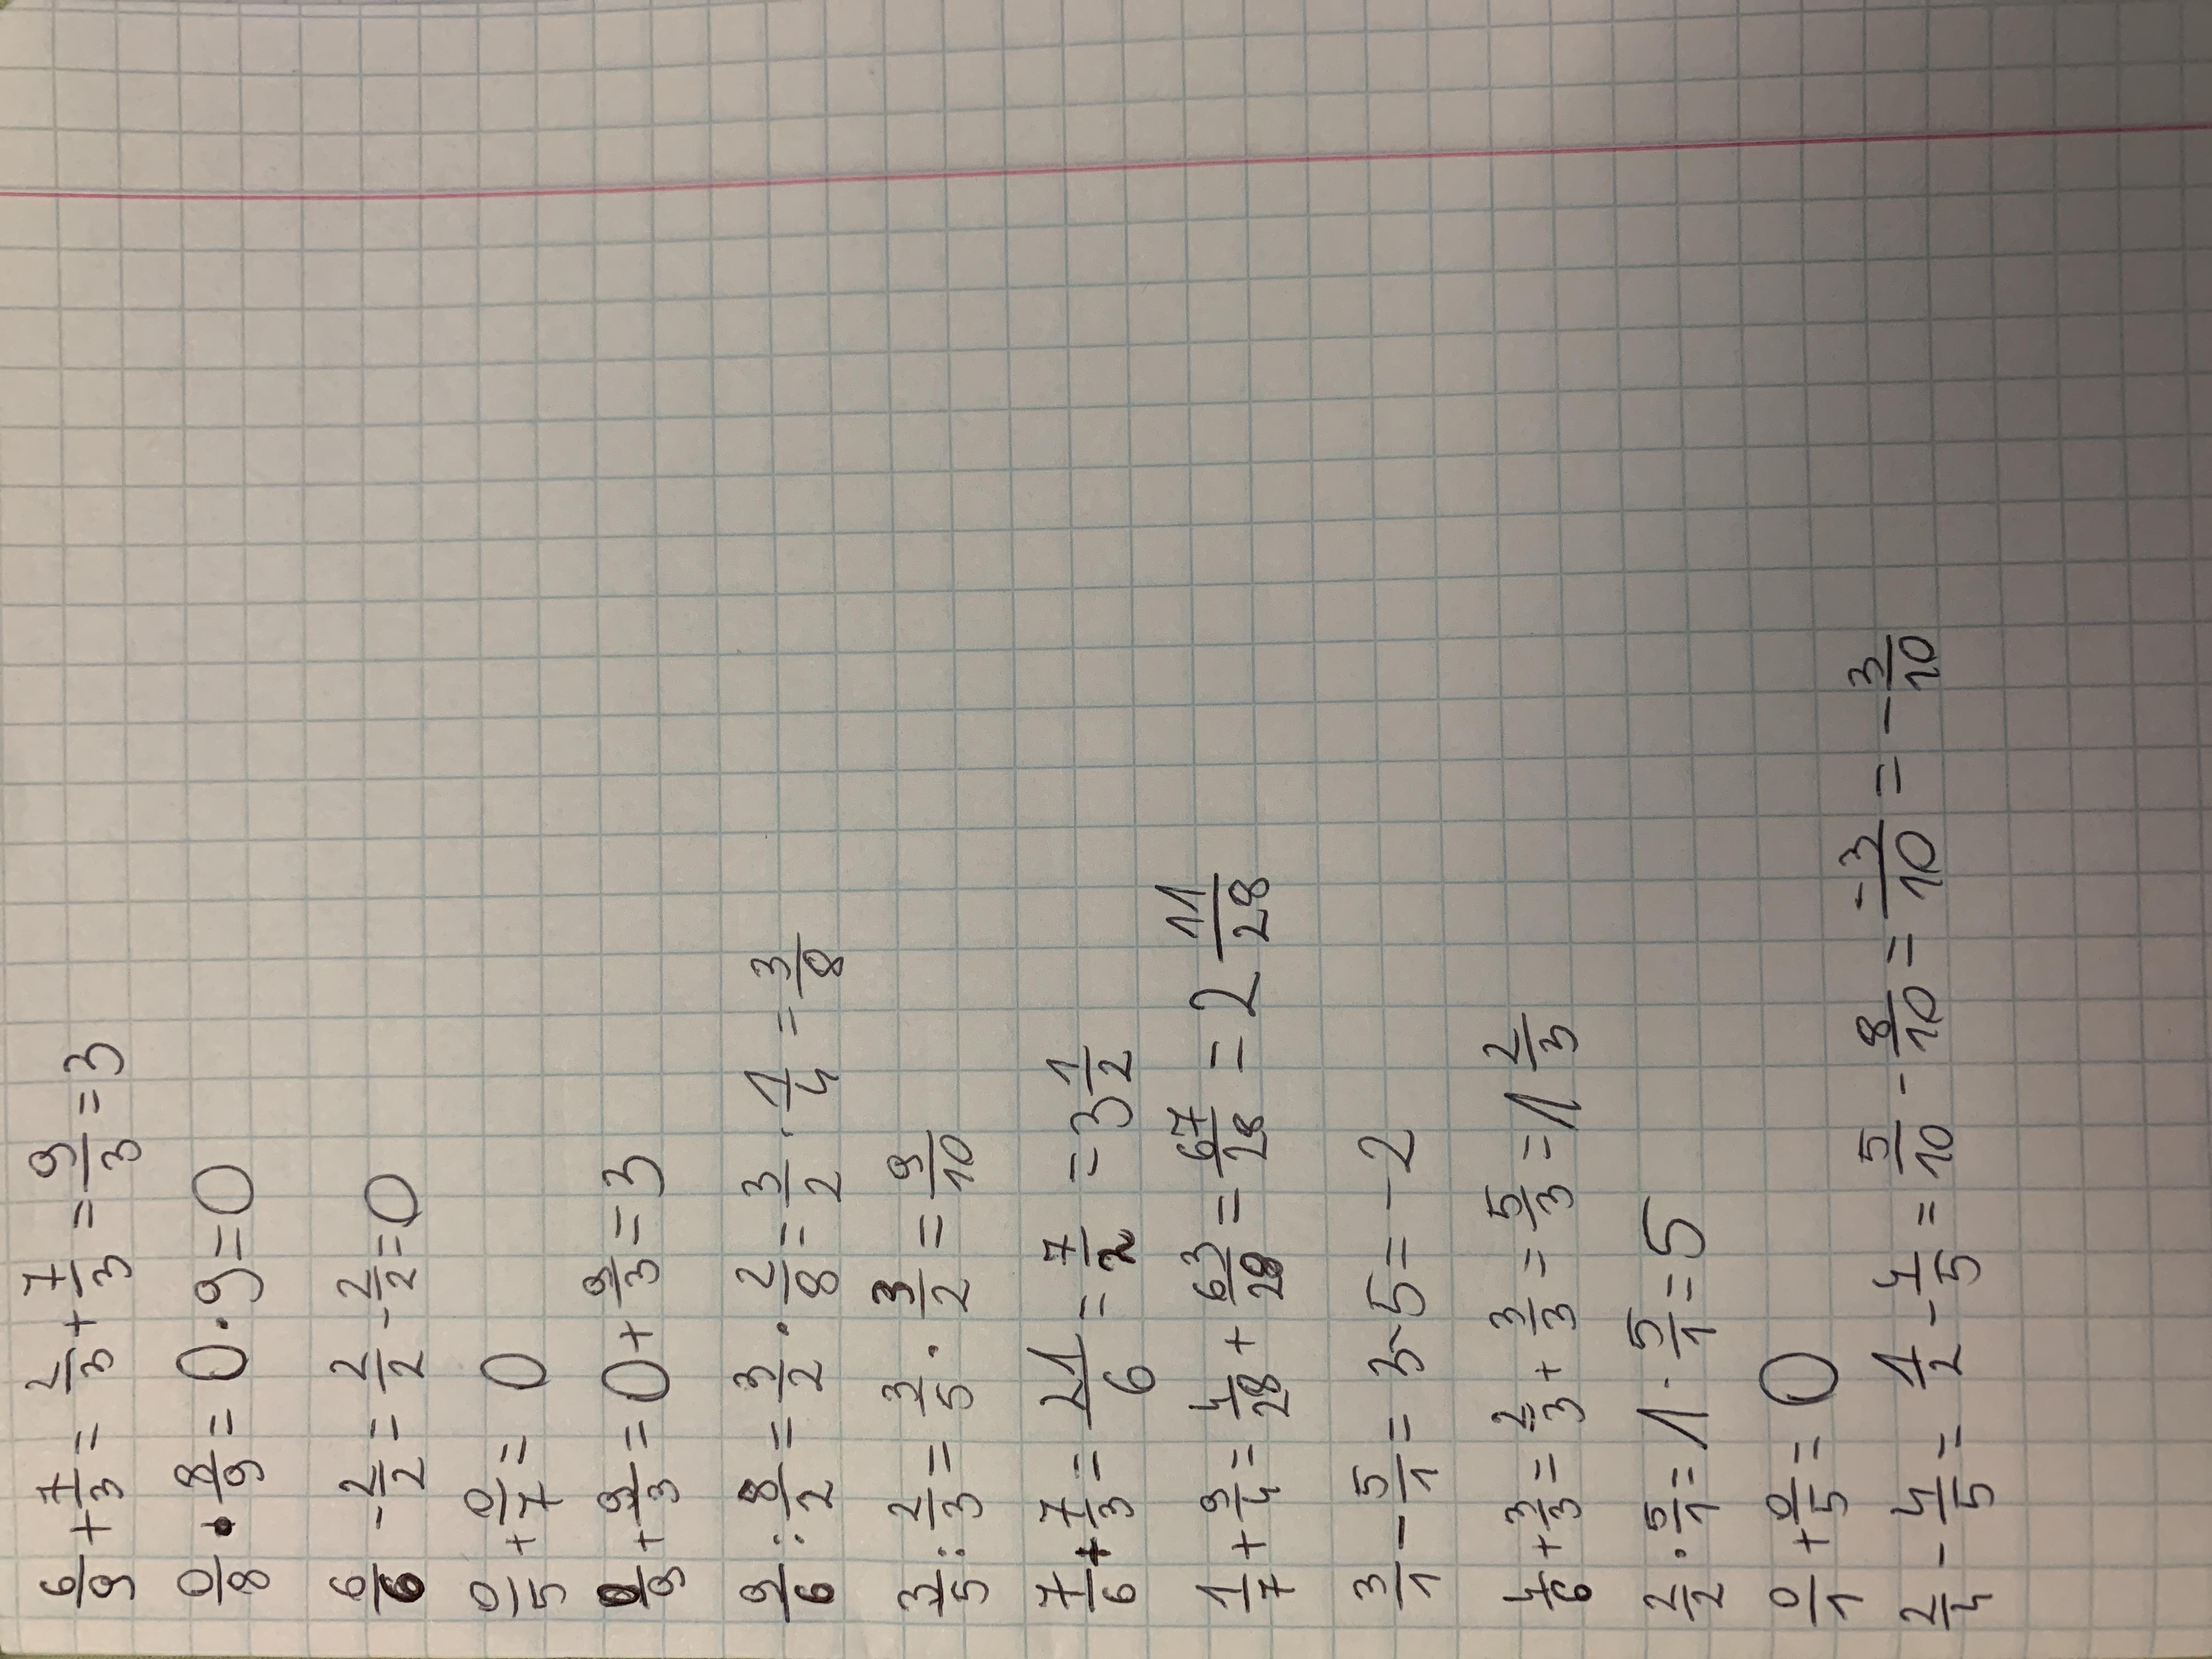 6/9 + 7/3 = 2/3 + 7/3 = 9/3 = 3
0/8 · 8/9 = 0 · 9 = 0
6/6 - 2/2 = 2/2 - 2/2 = 0
0/5 + 0/7 = 0
0/9 + 9/3 = 0 + 9/3 = 3
9/6 : 8/2 = 3/2 · 2/8 = 3/2 · 1/4 = 3/8
3/5 : 2/3 = 3/5 · 3/2 = 9/10
7/6 + 7/3 = 21/6 = 7/2 = 3 1/2
1/7 + 9/4 = 4/28 + 63/28 = 67/28 = 2 11/28
3/1 - 5/1 = 3 - 5 = -2
4/6 + 3/3 = 2/3 + 3/3 = 5/3 = 1 2/3
2/2 · 5/1 = 1 · 5/1 = 5
0/1 + 0/5 = 0
2/4 - 4/5 = 1/2 - 4/5 = 5/10 - 8/10 = -3/10 = - 3/10